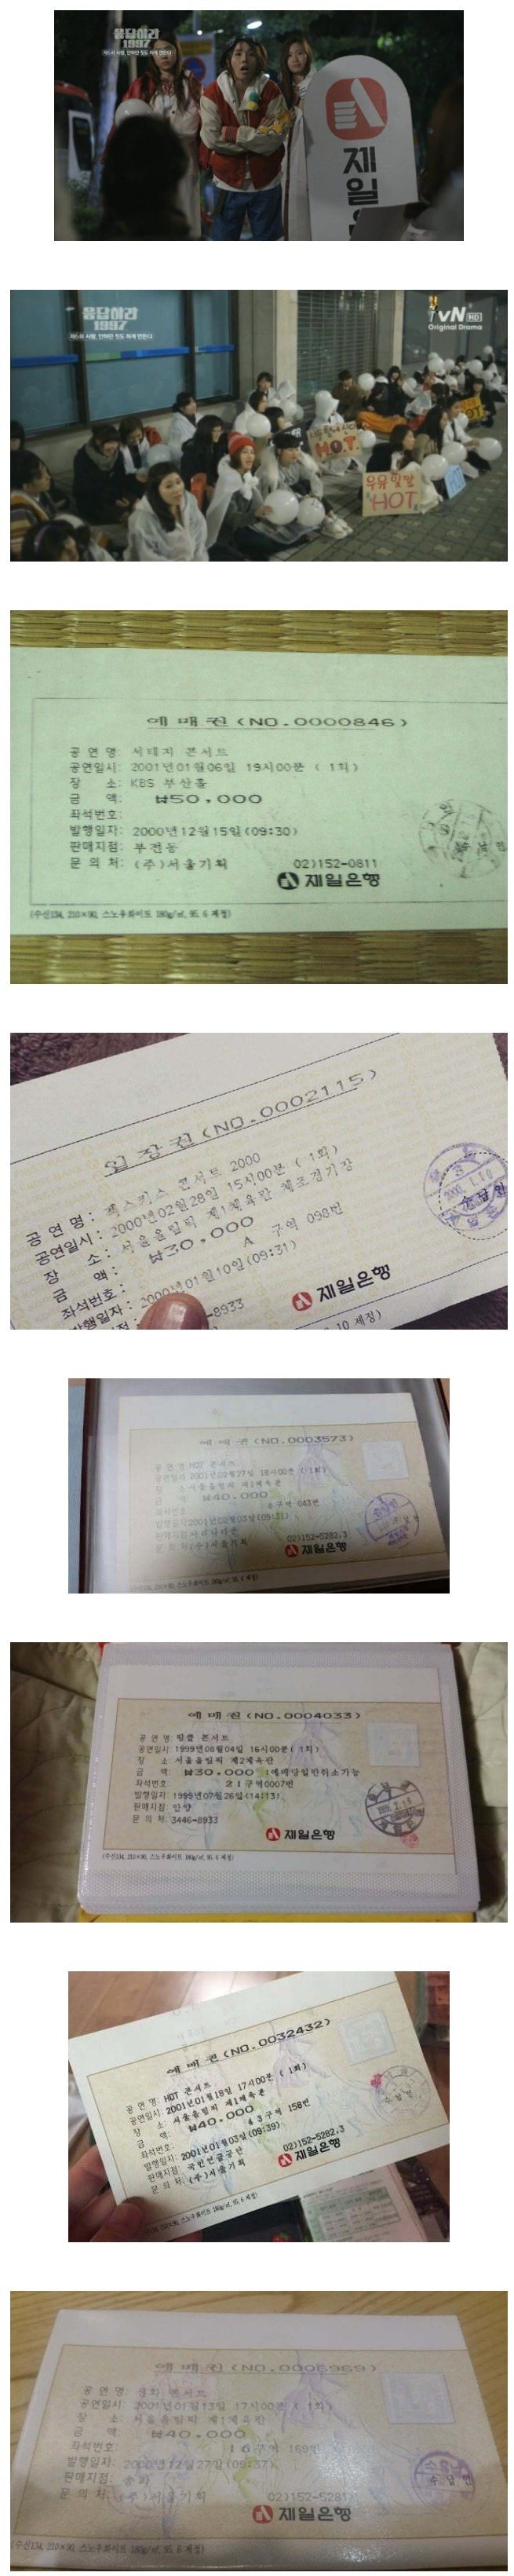 응답하라
1997
제6회 사랑, 안하던 짓도 하게 만든다
제
일
응답하라
1997
제6회 사랑, 안하던 짓도 하게 만든다
tvN HD
Original Drama
H.O.T.
우윳빛깔
HOT
HOT
예 매 권 (NO.0000846)
공 연 명: 서태지 콘서트
공연일시: 2001년01월06일 19시00분 ( 1회)
장 소: KBS 부산홀
금 액: ₩50,000
좌석번호:
발행일자: 2000년12월15일(09:30)
판매지점: 부전동
문 의 처: (주)서울기획 02)152-0811
제일은행
(수신134, 210×90, 스노우화이트 180g/㎡, 95. 6 제정)
입 장 권 (NO.0002115)
공 연 명 : 젝스키스 콘서트 2000
공연일시 : 2000년02월28일 15시00분 ( 1회)
장 소 : 서울올림픽 제1체육관 체조경기장
금 액 : ₩30,000
좌석번호 : A 구역 098번
발행일자 : 2000년01월10일(09:31)
-8933
제일은행
2000. 1. 10
수납인
10 제정)
예 매 권 (NO.0003573)
공 연 명 HOT 콘서트
공연일시 2001년02월27일 18시00분 ( 1회)
장 소 서울올림픽 제1체육관
금 액 ₩40,000
좌석번호 구역 043번
발행일자 2001년02월03일(09:31)
판매지점
문 의 처 (주)서울기획 02)152-5282,3
제일은행
예 매 권 (NO.0004033)
공 연 명: 핑클 콘서트
공연일시: 1999년08월04일 16시00분( 1회)
장 소: 서울올림픽 제2체육관
금 액: ₩30,000 :예매당일만취소가능
좌석번호: 21구역0007번
발행일자: 1999년07월26일(14:13)
판매지점: 안양
문 의 처: 3446-8933
제일은행
(수신134, 210×90, 스노우화이트 180g/㎡, 95. 6 제정)
예 매 권 (NO.0032432)
공 연 명 HOT 콘서트
공연일시: 2001년01월18일 17시00분 ( 1회)
장 소: 서울올림픽 제1체육관
금 액: ₩40,000
좌석번호: 43구역 158번
발행일자: 2001년01월03일(09:39)
판매지점: 국민연금공단
문 의 처: (주)서울기획 02)152-5282,3
제일은행
수납인
134, 210×90, 스노우화이트 180g/㎡, 95. 6 제정)
예 매 권 (NO.0006969)
공 연 명: 신화 콘서트
공연일시: 2001년01월13일 17시00분 ( 1회)
장 소: 서울올림픽 제1체육관
금 액: ₩40,000
좌석번호: 16구역 169번
발행일자: 2000년12월27일(09:37)
판매지점: 송파
문 의 처: (주)서울기획 02)152-5281
제일은행
수납인
(수신134, 210×90, 스노우화이트 180g/㎡, 95. 6 제정)